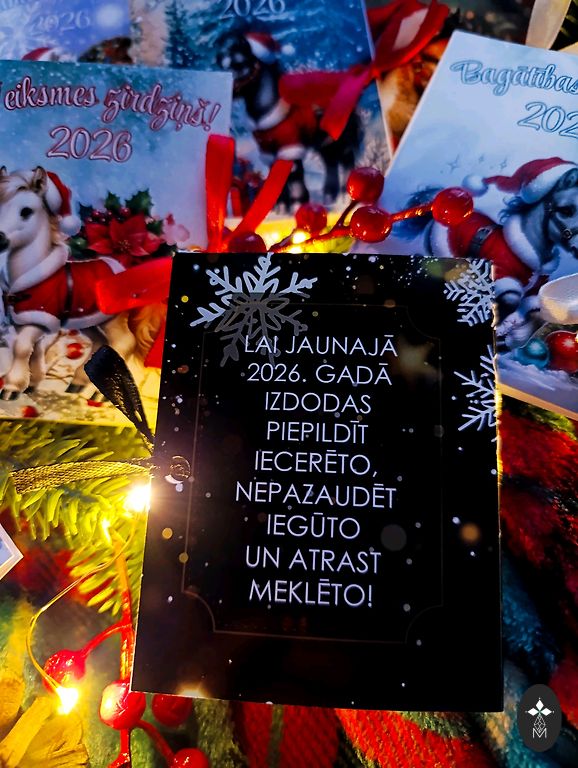 2026
Veiksmes zirdziņš!
2026
Bagātības
202
LAI JAUNAJĀ
2026. GADĀ
IZDODAS
PIEPILDĪT
IECERĒTO,
NEPAZAUDĒT
IEGŪTO
UN ATRAST
MEKLĒTO!
M